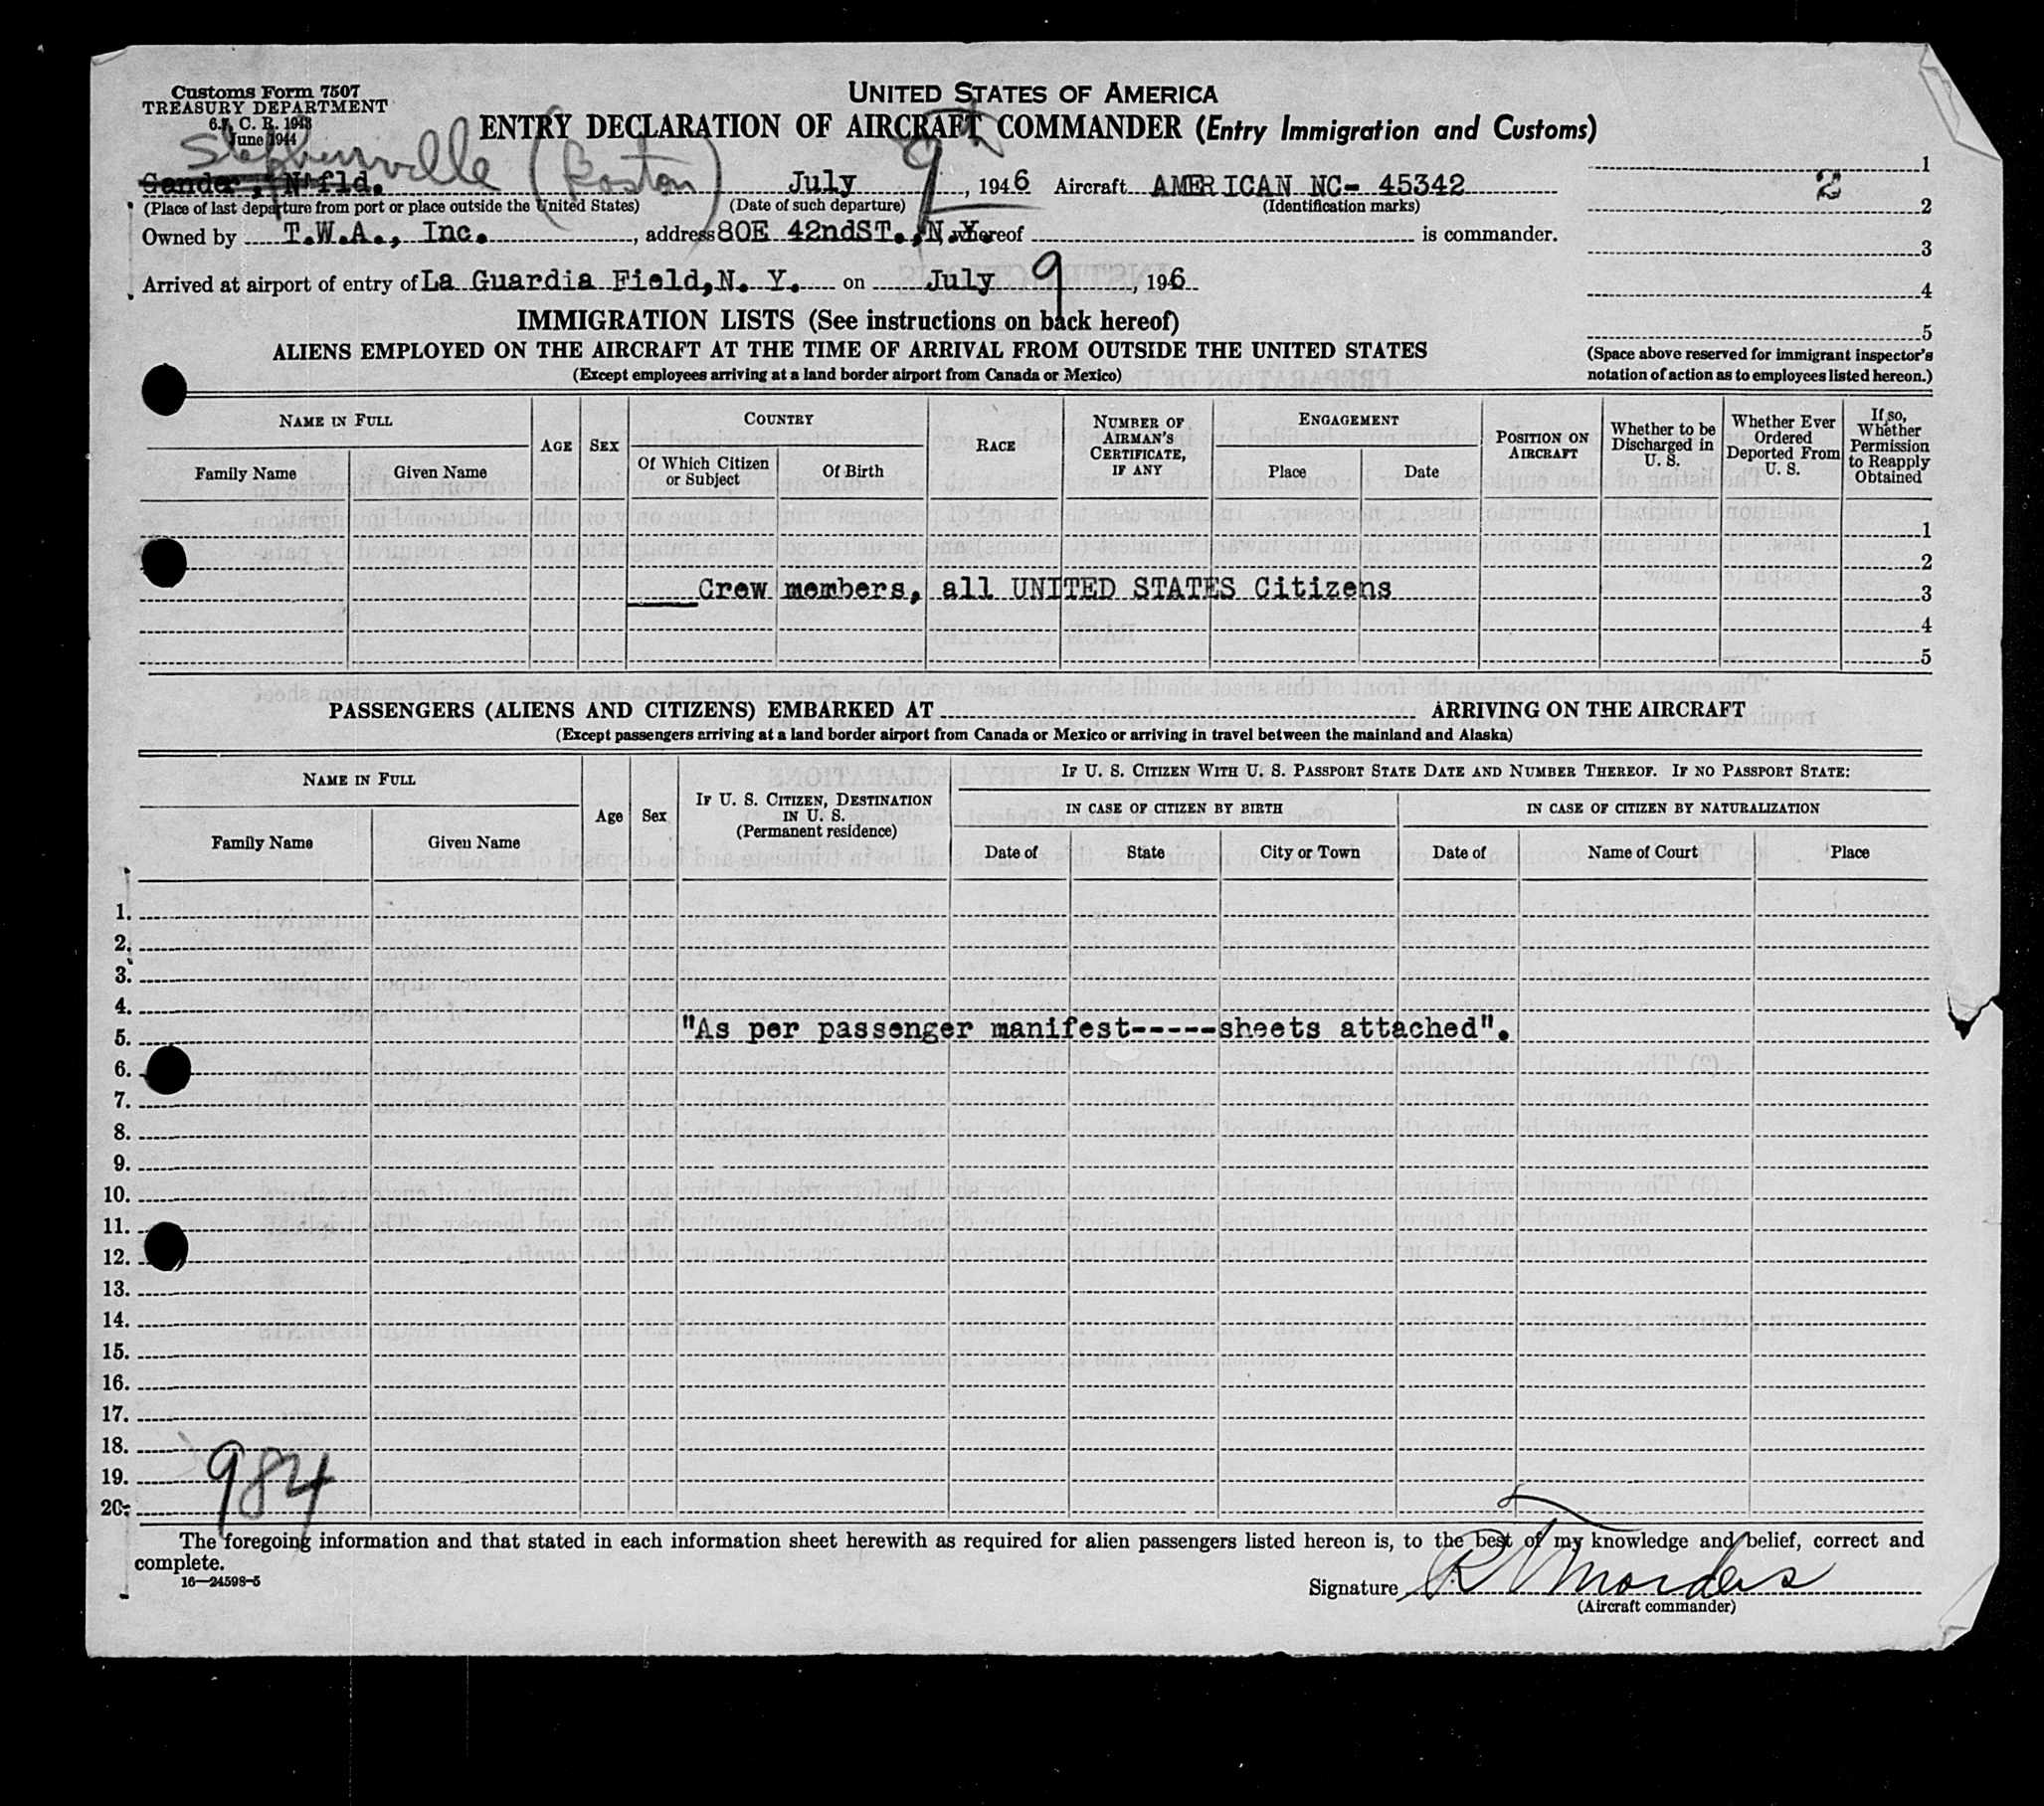 Customs Form 7507
TREASURY DEPARTMENT
C. R. 1943
June 1944
UNITED STATES OF AMERICA
ENTRY DECLARATION OF AIRCRAFT COMMANDER (Entry Immigration and Customs)
Stephenville (Boston)
Gander, N'fld. July 9, 1946 Aircraft AMERICAN NC- 45342
(Place of last departure from port or place outside the United States) (Date of such departure) (Identification marks)
Owned by T.W.A., Inc., address 80E 42ndST., N.Y. whereof is commander.
Arrived at airport of entry of La Guardia Field, N. Y. on July 9, 1946
1
2
2
3
4
5
(Space above reserved for immigrant inspector's
notation of action as to employees listed hereon.)
IMMIGRATION LISTS (See instructions on back hereof)
ALIENS EMPLOYED ON THE AIRCRAFT AT THE TIME OF ARRIVAL FROM OUTSIDE THE UNITED STATES
(Except employees arriving at a land border airport from Canada or Mexico)
NAME IN FULL
Family Name Given Name
AGE
SEX
COUNTRY
Of Which Citizen
or Subject
Of Birth
RACE
NUMBER OF
AIRMAN'S
CERTIFICATE,
IF ANY
ENGAGEMENT
Place Date
POSITION ON
AIRCRAFT
Whether to be
Discharged in
U. S.
Whether Ever
Ordered
Deported From
U. S.
If so,
Whether
Permission
to Reapply
Obtained
1
2
Crew members, all UNITED STATES Citizens 3
4
5
PASSENGERS (ALIENS AND CITIZENS) EMBARKED AT ARRIVING ON THE AIRCRAFT
(Except passengers arriving at a land border airport from Canada or Mexico or arriving in travel between the mainland and Alaska)
NAME IN FULL
Family Name Given Name
Age
Sex
IF U. S. CITIZEN, DESTINATION
IN U. S.
(Permanent residence)
IF U. S. CITIZEN WITH U. S. PASSPORT STATE DATE AND NUMBER THEREOF. IF NO PASSPORT STATE:
IN CASE OF CITIZEN BY BIRTH IN CASE OF CITIZEN BY NATURALIZATION
Date of State City or Town Date of Name of Court Place
1.
2.
3.
4.
5. "As per passenger manifest-----sheets attached".
6.
7.
8.
9.
10.
11.
12.
13.
14.
15.
16.
17.
18.
19. 984
20.
The foregoing information and that stated in each information sheet herewith as required for alien passengers listed hereon is, to the best of my knowledge and belief, correct and
complete.
16—24598-5
Signature
(Aircraft commander)